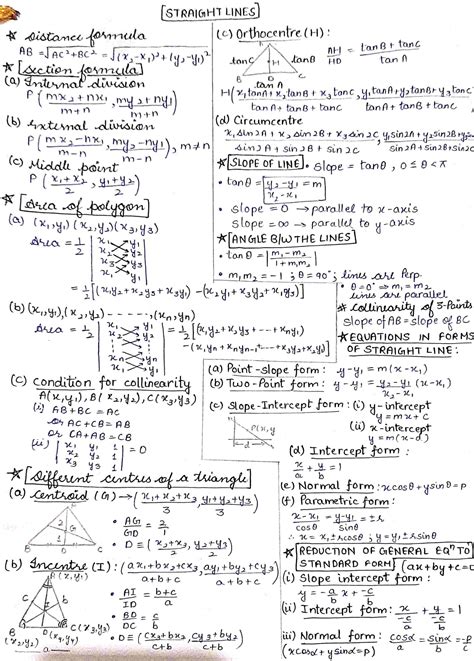 STRAIGHT LINES
★ Distance formula
AB = √AC²+BC² = √(x₂-x₁)²+(y₂-y₁)²
★ Section formula
(a) Internal division
P(mx₂+nx₁/m+n, my₂+ny₁/m+n)
(b) External division
P(mx₂-nx₁/m-n, my₂-ny₁/m-n), m≠n
(c) Middle point
P(x₁+x₂/2, y₁+y₂/2)
★ Area of polygon
(a) (x₁,y₁)(x₂,y₂)(x₃,y₃)
Area = 1/2
x₁ y₁
x₂ y₂
x₃ y₃
x₁ y₁
= 1/2[(x₁y₂+x₂y₃+x₃y₁)-(x₂y₁+x₃y₂+x₁y₃)]
(b) (x₁,y₁),(x₂,y₂)-----,(xₙ,yₙ)
Area = 1/2
x₁ y₁
x₂ y₂
x₃ y₃
xₙ yₙ
x₁ y₁
= 1/2[(x₁y₂+x₂y₃+---+xₙy₁)
(c) Condition for collinearity
A(x₁,y₁), B(x₂,y₂), C(x₃,y₃)
(i) AB+BC = AC
or AC+CB = AB
or CA+AB = CB
(ii)
x₁ y₁ 1
x₂ y₂ 1
x₃ y₃ 1
= 0
★ Different centres of a triangle
(a) Centroid (G) → (x₁+x₂+x₃/3, y₁+y₂+y₃/3)
2 G
1
• AG/GD = 2/1
• D ≡ (x₂+x₃/2, y₂+y₃/2)
(b) Incentre (I): (ax₁+bx₂+cx₃/a+b+c, ay₁+by₂+cy₃/a+b+c)
A(x₁,y₁)
• AI/ID = b+c/a
• BD/DC = c/b
B D C (x₃,y₃)
(x₂,y₂) (x₄,y₄)
• D ≡ (cx₃+bx₂/c+b, cy₃+by₂/c+b)
(c) Orthocentre (H):
A
tanB H tanC
B C
tan A
AH/HD = tanB+tanC/tanA
H(x₁tanA+x₂tanB+x₃tanC/tanA+tanB+tanC, y₁tanA+y₂tanB+y₃tanC/tanA+tanB+tanC)
(d) Circumcentre
x₁sin2A+x₂sin2B+x₃sin2C/sin2A+sin2B+sin2C, y₁sin2A+y₂sin2B+y₃
★ SLOPE OF LINE • Slope = tanθ, 0≤θ<π
• tanθ = y₂-y₁/x₂-x₁ = m
• Slope = 0 → parallel to x-axis
Slope = ∞ → parallel to y-axis
★ ANGLE B/W THE LINES
• tanθ = |m₁-m₂/1+m₁m₂|
• m₁m₂ = -1; θ=90°; lines are Perp.
• θ=0° ⇒ m₁=m₂
lines are parallel
★ Collinearity of 3-Points
Slope of AB = slope of BC
★ EQUATIONS IN FORMS
OF STRAIGHT LINE:
(a) Point-slope form: y-y₁ = m(x-x₁)
(b) Two-Point form: y-y₁ = y₂-y₁/x₂-x₁ (x-x₁)
(c) Slope-Intercept form: (i) y-intercept
y = mx+c
(ii) x-intercept
y = m(x-d)
P(x,y)
(d) Intercept form:
x/a + y/b = 1
(e) Normal form: xcosθ+ysinθ=p
(f) Parametric form:
x-x₁/cosθ = y-y₁/sinθ = ±r
∴ x = x₁±rcosθ; y = y₁±rsinθ
★ REDUCTION OF GENERAL EQⁿ TO
STANDARD FORM (ax+by+c=
(i) Slope intercept form:
y = -a/b x + -c/b
(ii) Intercept form: x/-c/a + y/-c/b = 1
iii) Normal form: cosα/a = sinα/b = p/-c
(xcosα+ysinα=p)